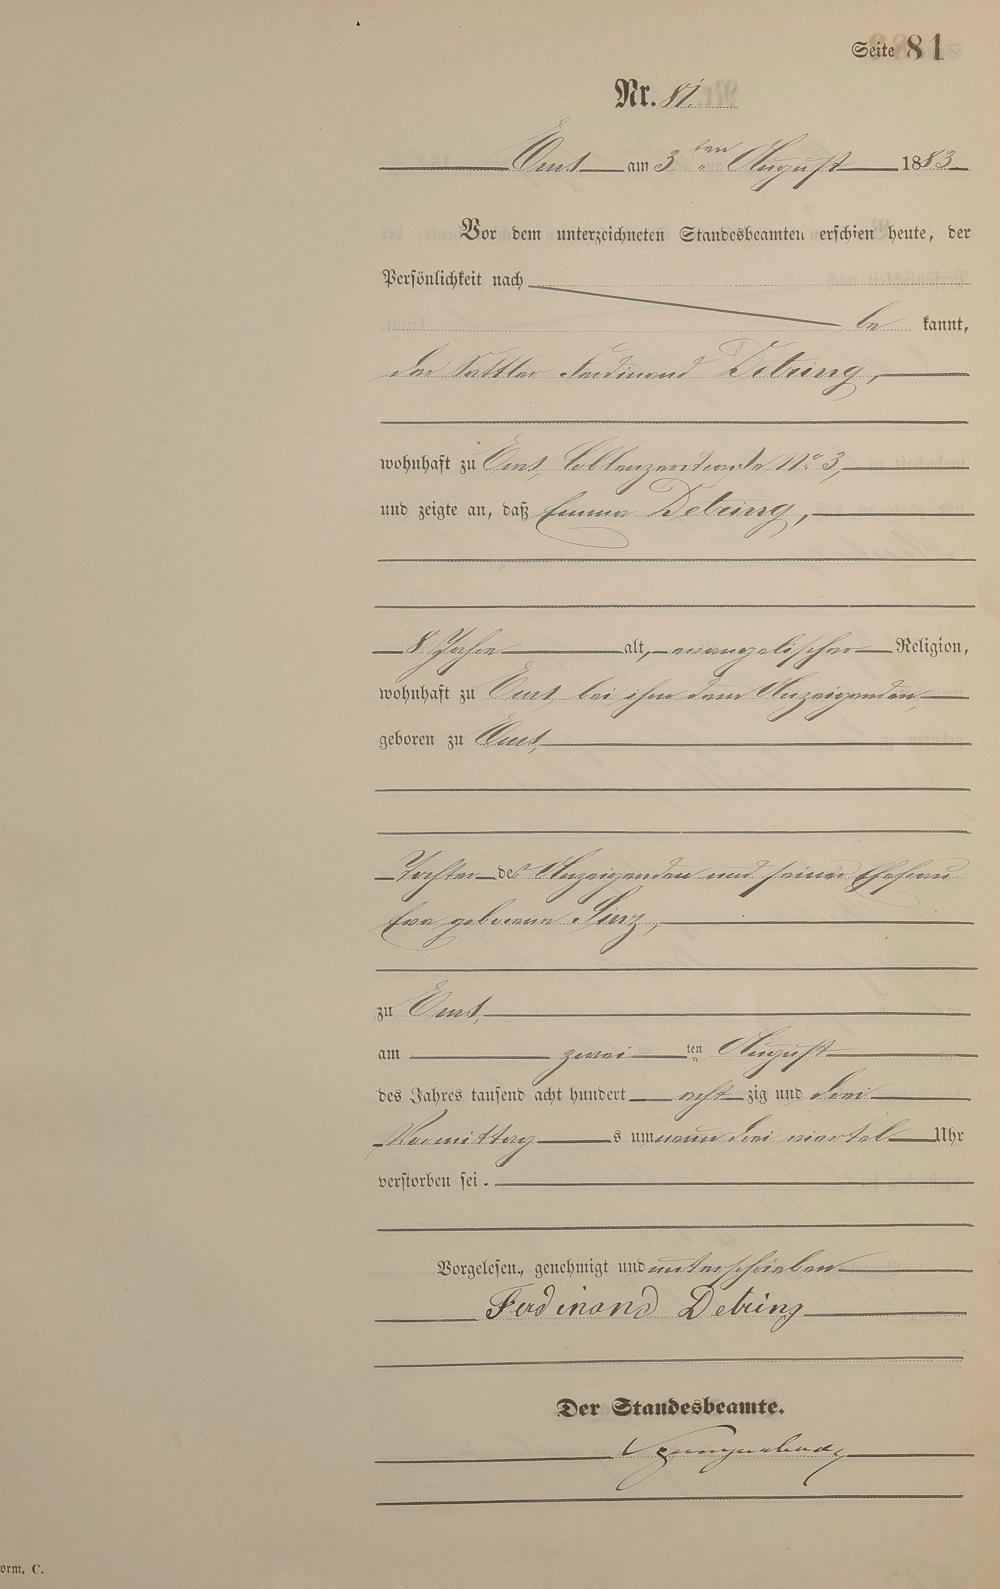 Seite 81
Nr. 81.
Ems am 3ten August 1883
Vor dem unterzeichneten Standesbeamten erschien heute, der
Persönlichkeit nach
be kannt,
der Sattler Ferdinand Detring,
wohnhaft zu Ems, Coblenzerstraße No 3,
und zeigte an, daß Emma Detring,
8 Jahre alt, evangelischer Religion,
wohnhaft zu Ems bei ihm dem Anzeigenden,
geboren zu Ems,
Tochter des Anzeigenden und seiner Ehefrau
Eva geborene Sinz,
zu Ems,
am zwei ten August
des Jahres tausend acht hundert acht zig und drei
Vormittag s um neun drei viertel Uhr
verstorben sei.
Vorgelesen, genehmigt und unterschrieben
Ferdinand Detring
Der Standesbeamte.
orm. C.